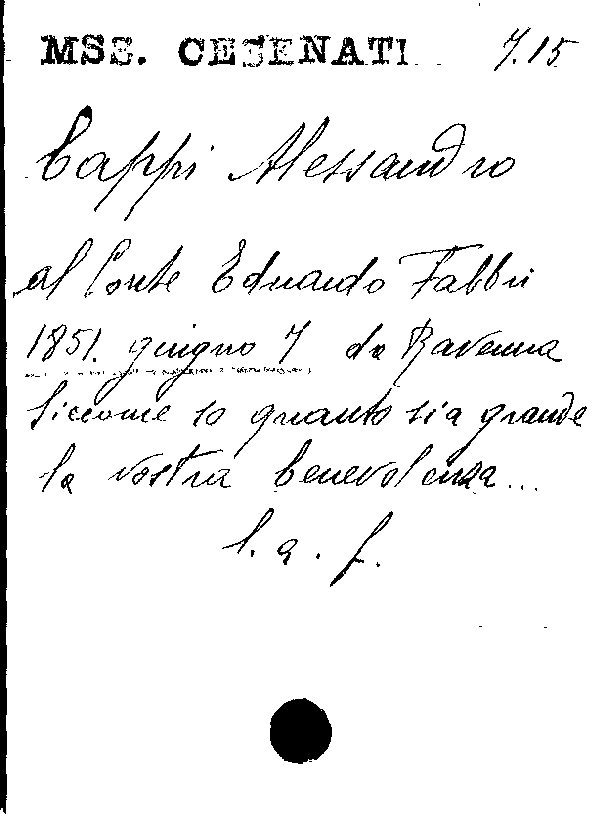 MSS. CESENATI 7.15
Cappi Alessandro
al Conte Eduardo Fabbri
1851. giugno 7 da Ravenna
Siccome so quanto sia grande
la vostra benevolenza...
l. a. f.